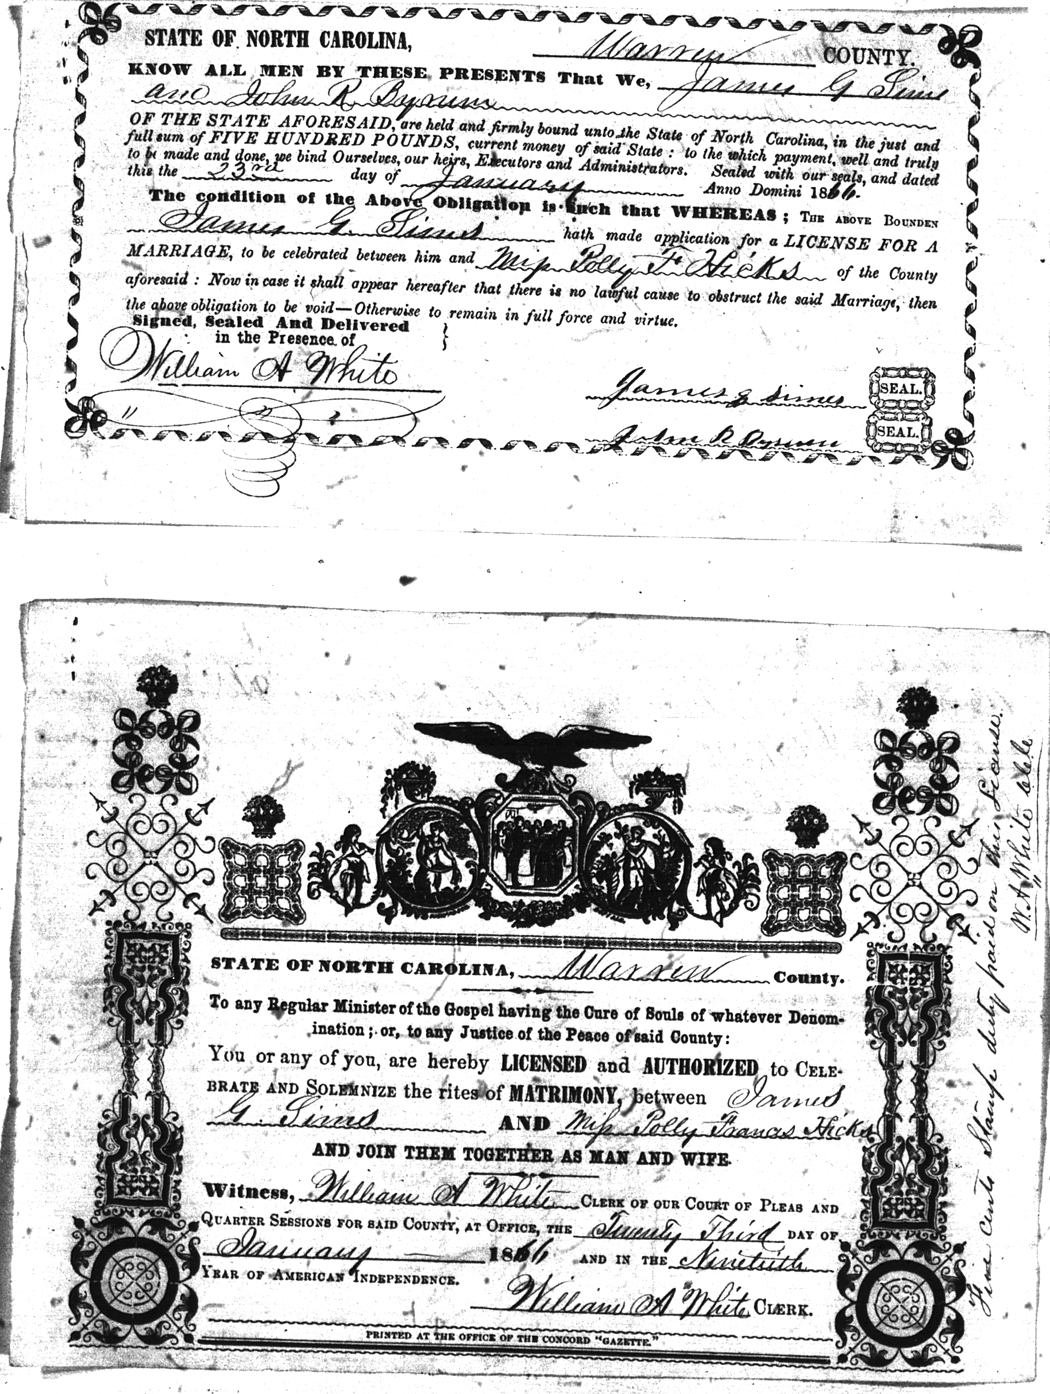 STATE OF NORTH CAROLINA, Warren COUNTY.
KNOW ALL MEN BY THESE PRESENTS That We, James G Sims
and John R. Bynum
OF THE STATE AFORESAID, are held and firmly bound unto the State of North Carolina, in the just and
full sum of FIVE HUNDRED POUNDS, current money of said State: to the which payment, well and truly
to be made and done, we bind Ourselves, our heirs, Executors and Administrators. Sealed with our seals, and dated
this the 23rd day of January Anno Domini 1866.
The condition of the Above Obligation is Such that WHEREAS; THE ABOVE BOUNDEN
James G. Sims hath made application for a LICENSE FOR A
MARRIAGE, to be celebrated between him and Miss Polly F. Hicks of the County
aforesaid: Now in case it shall appear hereafter that there is no lawful cause to obstruct the said Marriage, then
the above obligation to be void—Otherwise to remain in full force and virtue.
Signed, Sealed And Delivered }
in the Presence of
William A White
James G Sims SEAL.
John R Bynum SEAL.
STATE OF NORTH CAROLINA, Warren County.
To any Regular Minister of the Gospel having the Cure of Souls of whatever Denom-
ination; or, to any Justice of the Peace of said County:
You or any of you, are hereby LICENSED and AUTHORIZED to CELE-
BRATE AND SOLEMNIZE the rites of MATRIMONY, between James
G. Sims AND Miss Polly Francis Hicks
AND JOIN THEM TOGETHER AS MAN AND WIFE.
Witness, William A White CLERK OF OUR COURT OF PLEAS AND
QUARTER SESSIONS FOR SAID COUNTY, AT OFFICE, THE Twenty Third DAY OF
January 1866 AND IN THE Ninetieth
YEAR OF AMERICAN INDEPENDENCE.
William A White CLERK.
PRINTED AT THE OFFICE OF THE CONCORD "GAZETTE."
Five cents Stamp duty paid on this License.
W. A. White Clk